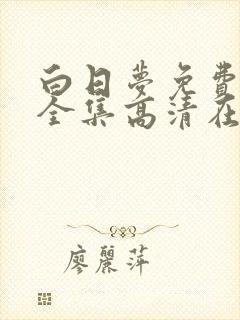 白日夢免費
全集高清在
廖麗萍